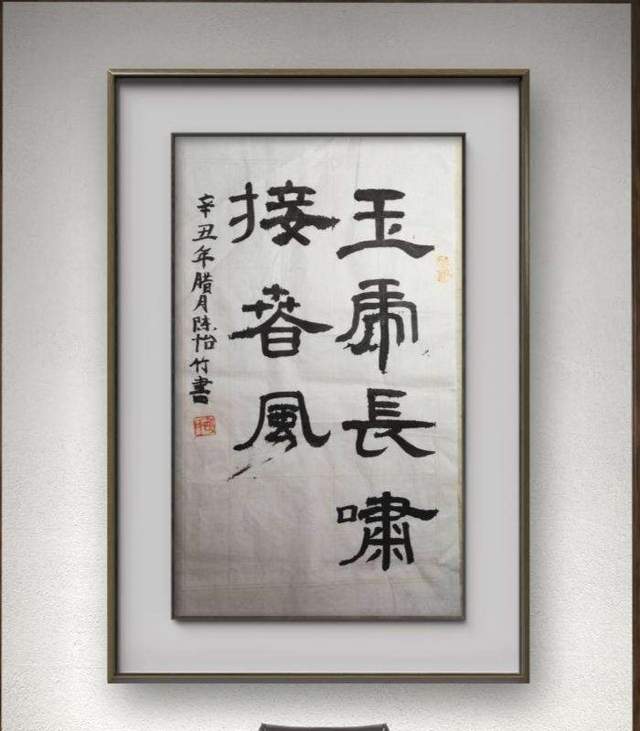 玉虎長嘯
接春風
辛丑年腊月陈怡竹書